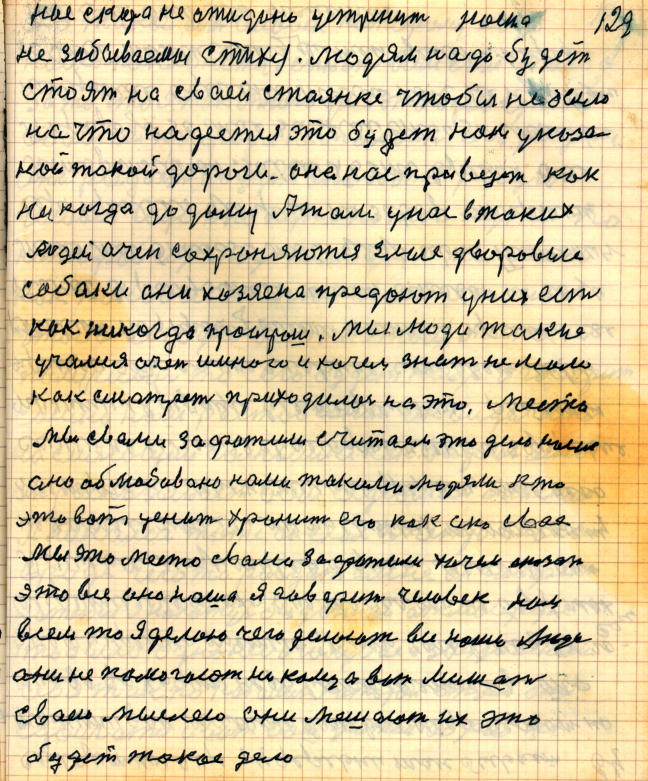 нас сюда не ожидано устренит наша 129
не забываемы стихи). людям надо будет
стоят на сваей стаянке чтобы не было
на что надеется это будет нам указа
ной такой дороги. она нас привезет как
никогда до дому А там у нас в таких
людей очен сохроняются злые дворовые
собаки они хозяена предоют у них ест
как никогда проигрыш. мы люди такие
учимся очен много и хочем знат не мало
как сматрет приходился на это. место
мы свами захватили считаем это дело наше
оно облюбовано нами такими людями кто
это вот ценит хранит его как оно свое
мы это место свами захватили хочем сказат
это все оно наша я говорит человек нам
всем то я делаю чего делают все наши люди
они не помогают ни кому а вот мишают
сваею мыслею они мешают их это
будет такое дело